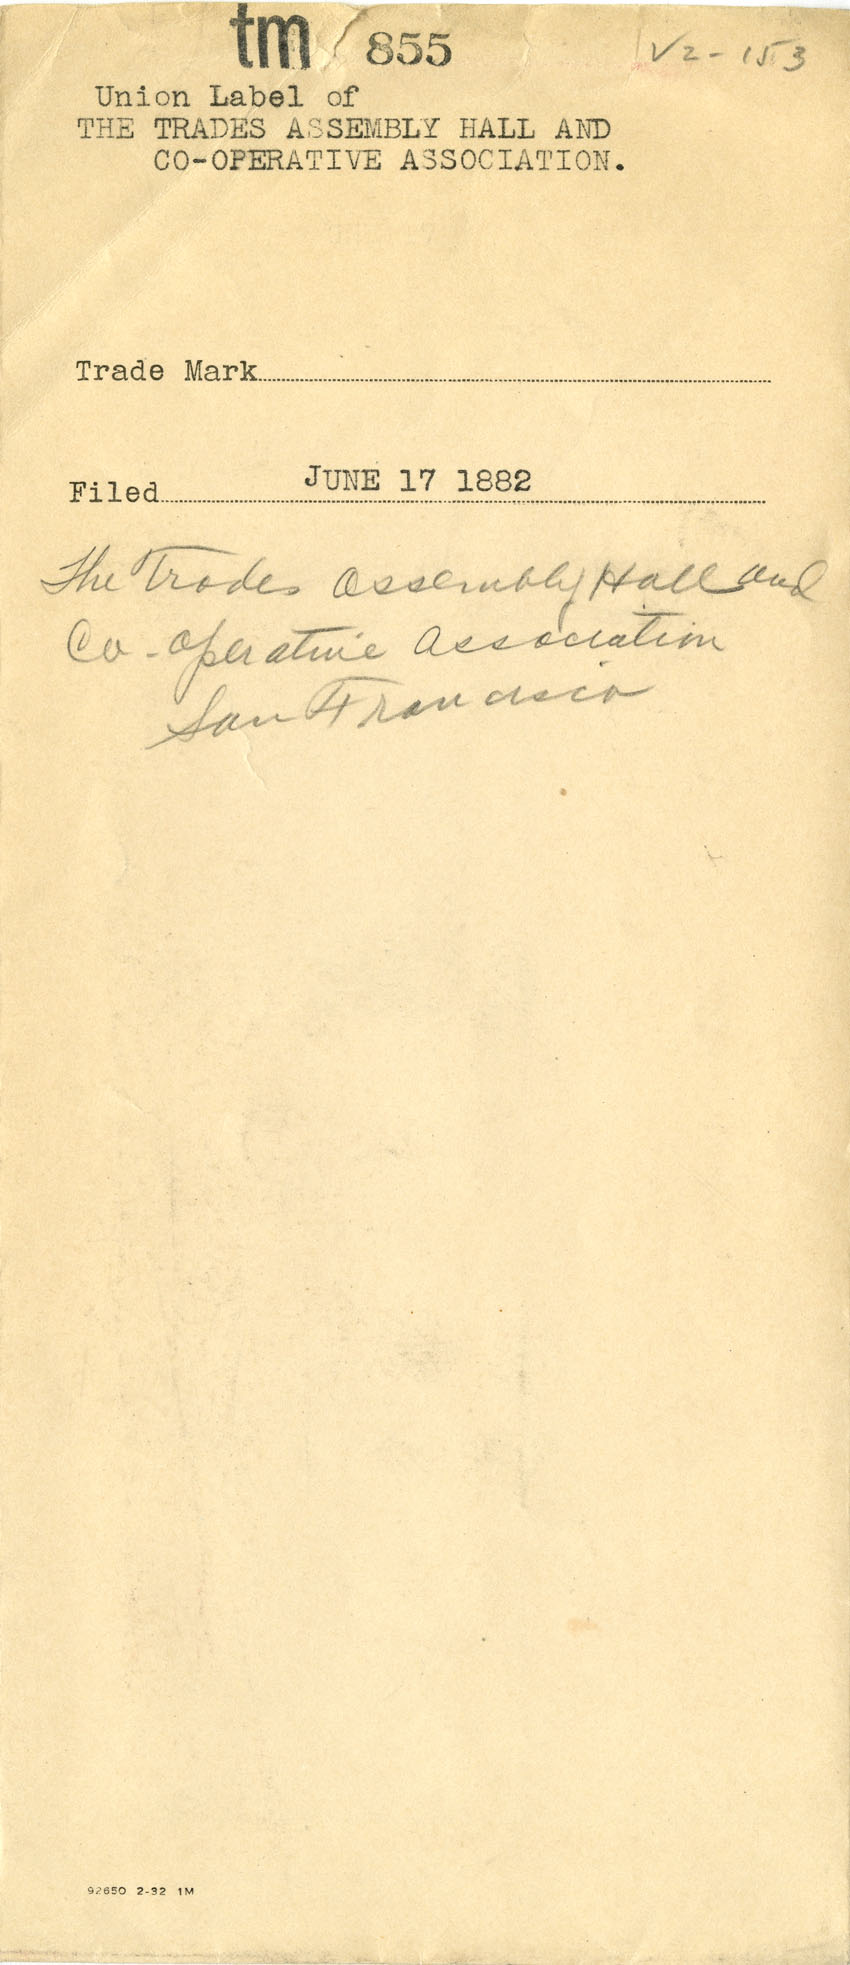 tm 855 V2-153
Union Label of
THE TRADES ASSEMBLY HALL AND
CO-OPERATIVE ASSOCIATION.
Trade Mark
Filed JUNE 17 1882
The Trades Assembly Hall and
Co-operative Association
San Francisco
92650 2-32 1M